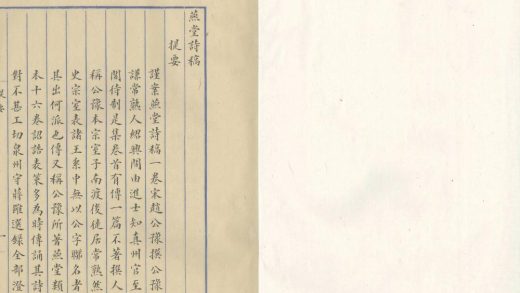 燕堂詩稿
提要
謹案燕堂詩稿一卷宋趙公豫撰公豫
謙常熟人紹興間由進士知真州官至
閣待制是集卷首有傳一篇不著撰人
稱公豫本宗室子南渡後徙居常熟然
史宗室表諸王系中無以公字聯名者
其出何派也傳又稱公豫所著燕堂類
本十六卷詔誥表策多為時傳誦其詩
對不甚工切泉州守蔣雝選錄全部澄